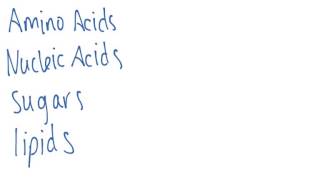 Amino Acids
Nucleic Acids
Sugars
lipids